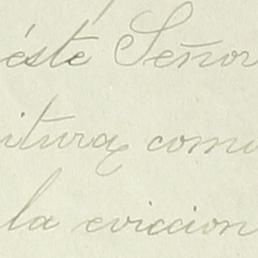 éste Señor
itura, como
la eviccion